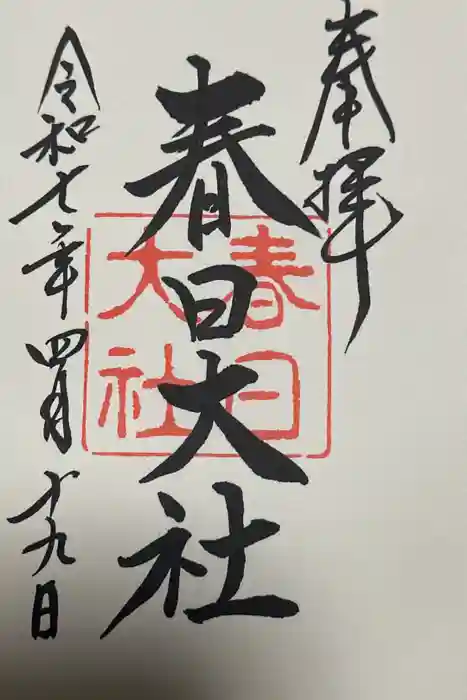 奉拝
春日大社
春日
大社
令和七年四月十九日